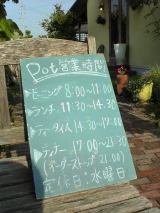 Pot営業時間
▶モーニング 8:00〜11:00
▶ランチ 11:30〜14:30
▶ティータイム 14:30〜17:00
▶ディナー 17:00〜21:30
(オーダーストップ 21:00)
定休日:水曜日